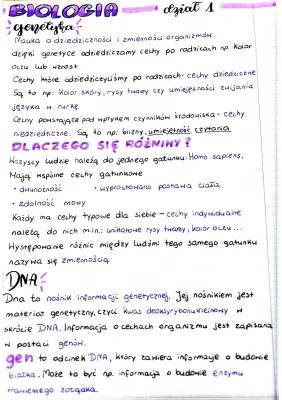 BIOLOGIA dział 1
genetyka
Nauka o dziedziczności i zmienności organizmów.
dzięki genetyce odziedziczamy cechy po rodzicach np kolor
oczu lub wzrost
Cechy które odziedziczyliśmy po rodzicach- cechy dziedziczne
Są to np: kolor skóry, rysy twarzy czy umiejętność zwijania
języka w rurkę.
Cechy powstające pod wpływem czynników środowiska - cechy
niedziedziczne. Są to np: blizny, umiejętność czytania
DLACZEGO SIĘ RÓŻNIMY?
Wszyscy ludzie należą do jednego gatunku: Homo sapiens.
Mają wspólne cechy gatunkowe
• dwunożność • wyprostowana postawa ciała
• zdolność mowy
Każdy ma cechy typowe dla siebie - cechy indywidualne
należą do nich m.in.: unikatowe rysy twarzy, kolor oczu...
Występowanie różnic między ludźmi tego samego gatunku
nazywa się zmiennością
DNA
Dna to nośnik informacji genetycznej. Jej nośnikiem jest
materiał genetyczny, czyli kwas deoksyrybonukleinowy w
skrócie DNA. Informacja o cechach organizmu jest zapisana
w postaci genów.
gen to odcinek DNA, który zawiera informacje o budowie
białka. Może to być np. informacja o budowie enzymu
trawiennego żołądka.